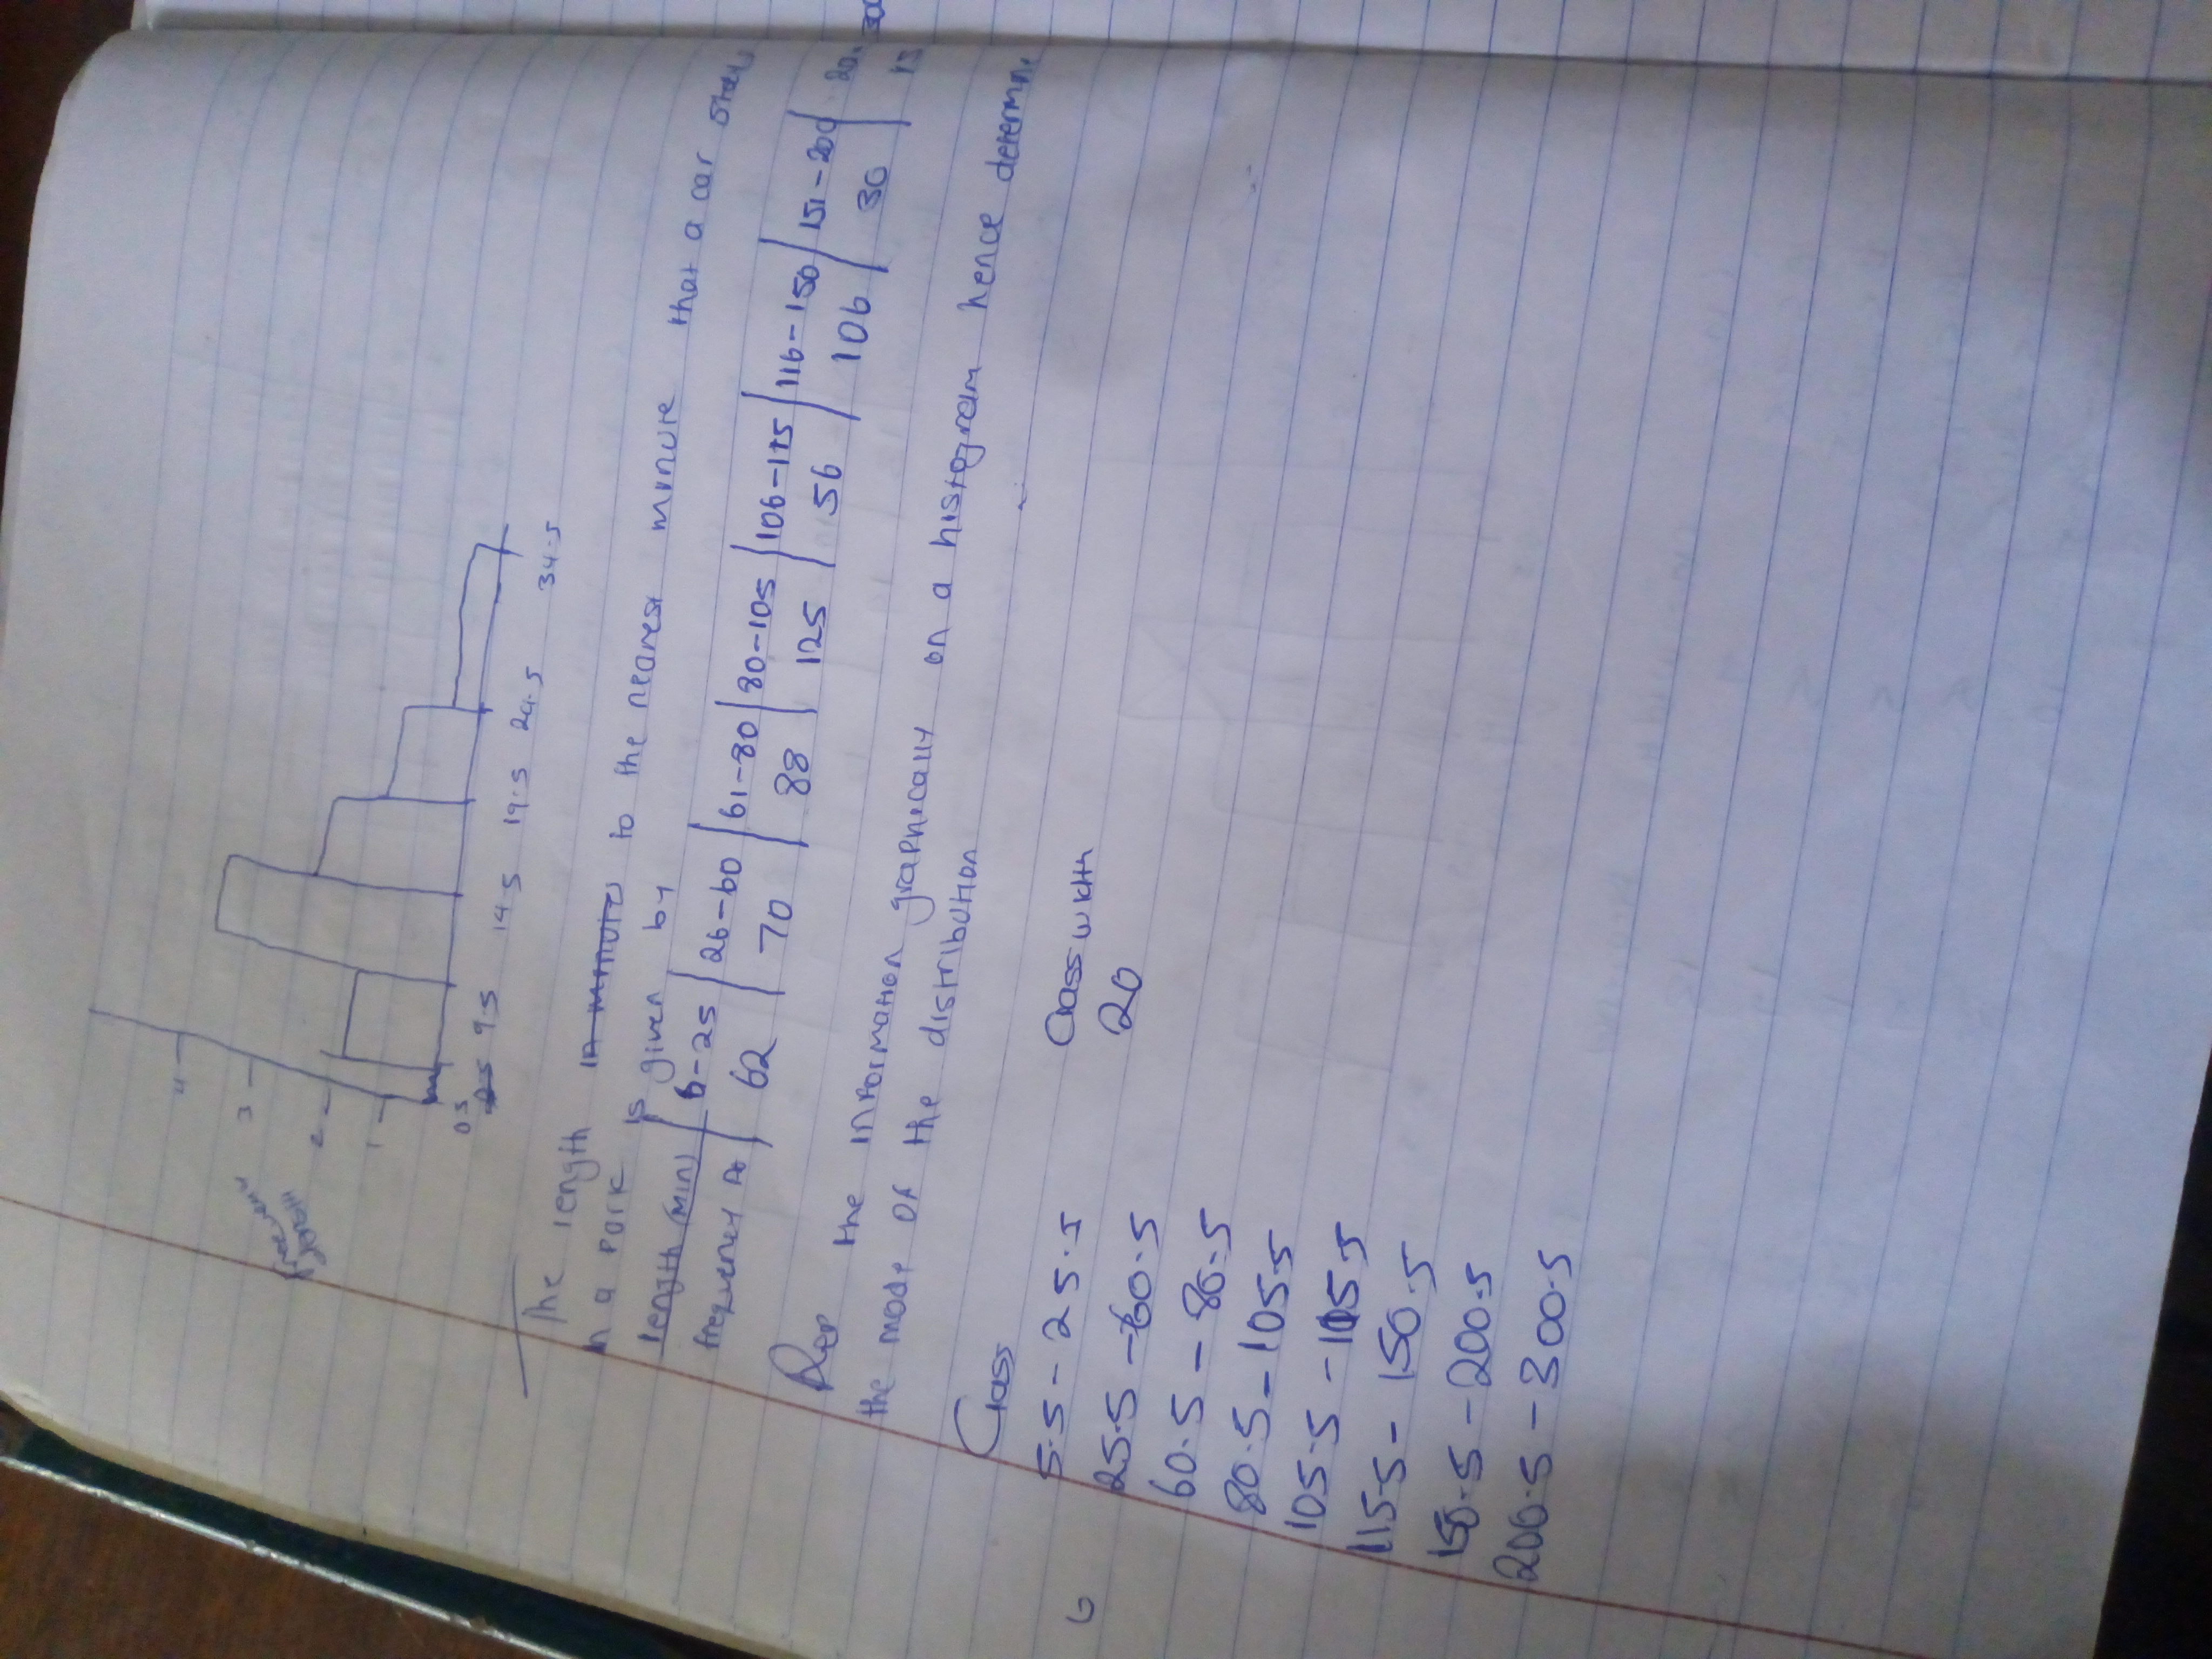 4
3
frequency
density
2
1
0.5 9.5 14.5 19.5 24.5 34.5
The length in minutes to the nearest minute that a car stays
in a park is given by
length (min) 6-25 26-60 61-80 80-105 106-115 116-150 151-200 300
frequency 62 70 88 125 56 106 30 15
Rep the information graphically on a histogram hence determine
the mode of the distribution
Class Class width
5.5 - 25.5 20
6
25.5 - 60.5
60.5 - 80.5
80.5 - 105.5
105.5 - 115.5
115.5 - 150.5
150.5 - 200.5
200.5 - 300.5